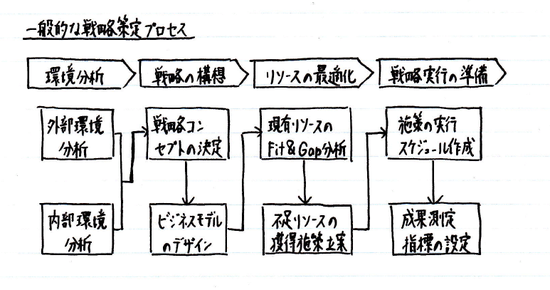 一般的な戦略策定プロセス
環境分析
戦略の構想
リソースの最適化
戦略実行の準備
外部環境
分析
内部環境
分析
戦略コン
セプトの決定
ビジネスモデル
のデザイン
現有リソースの
Fit&Gap分析
不足リソースの
獲得施策立案
施策の実行
スケジュール作成
成果測定
指標の設定